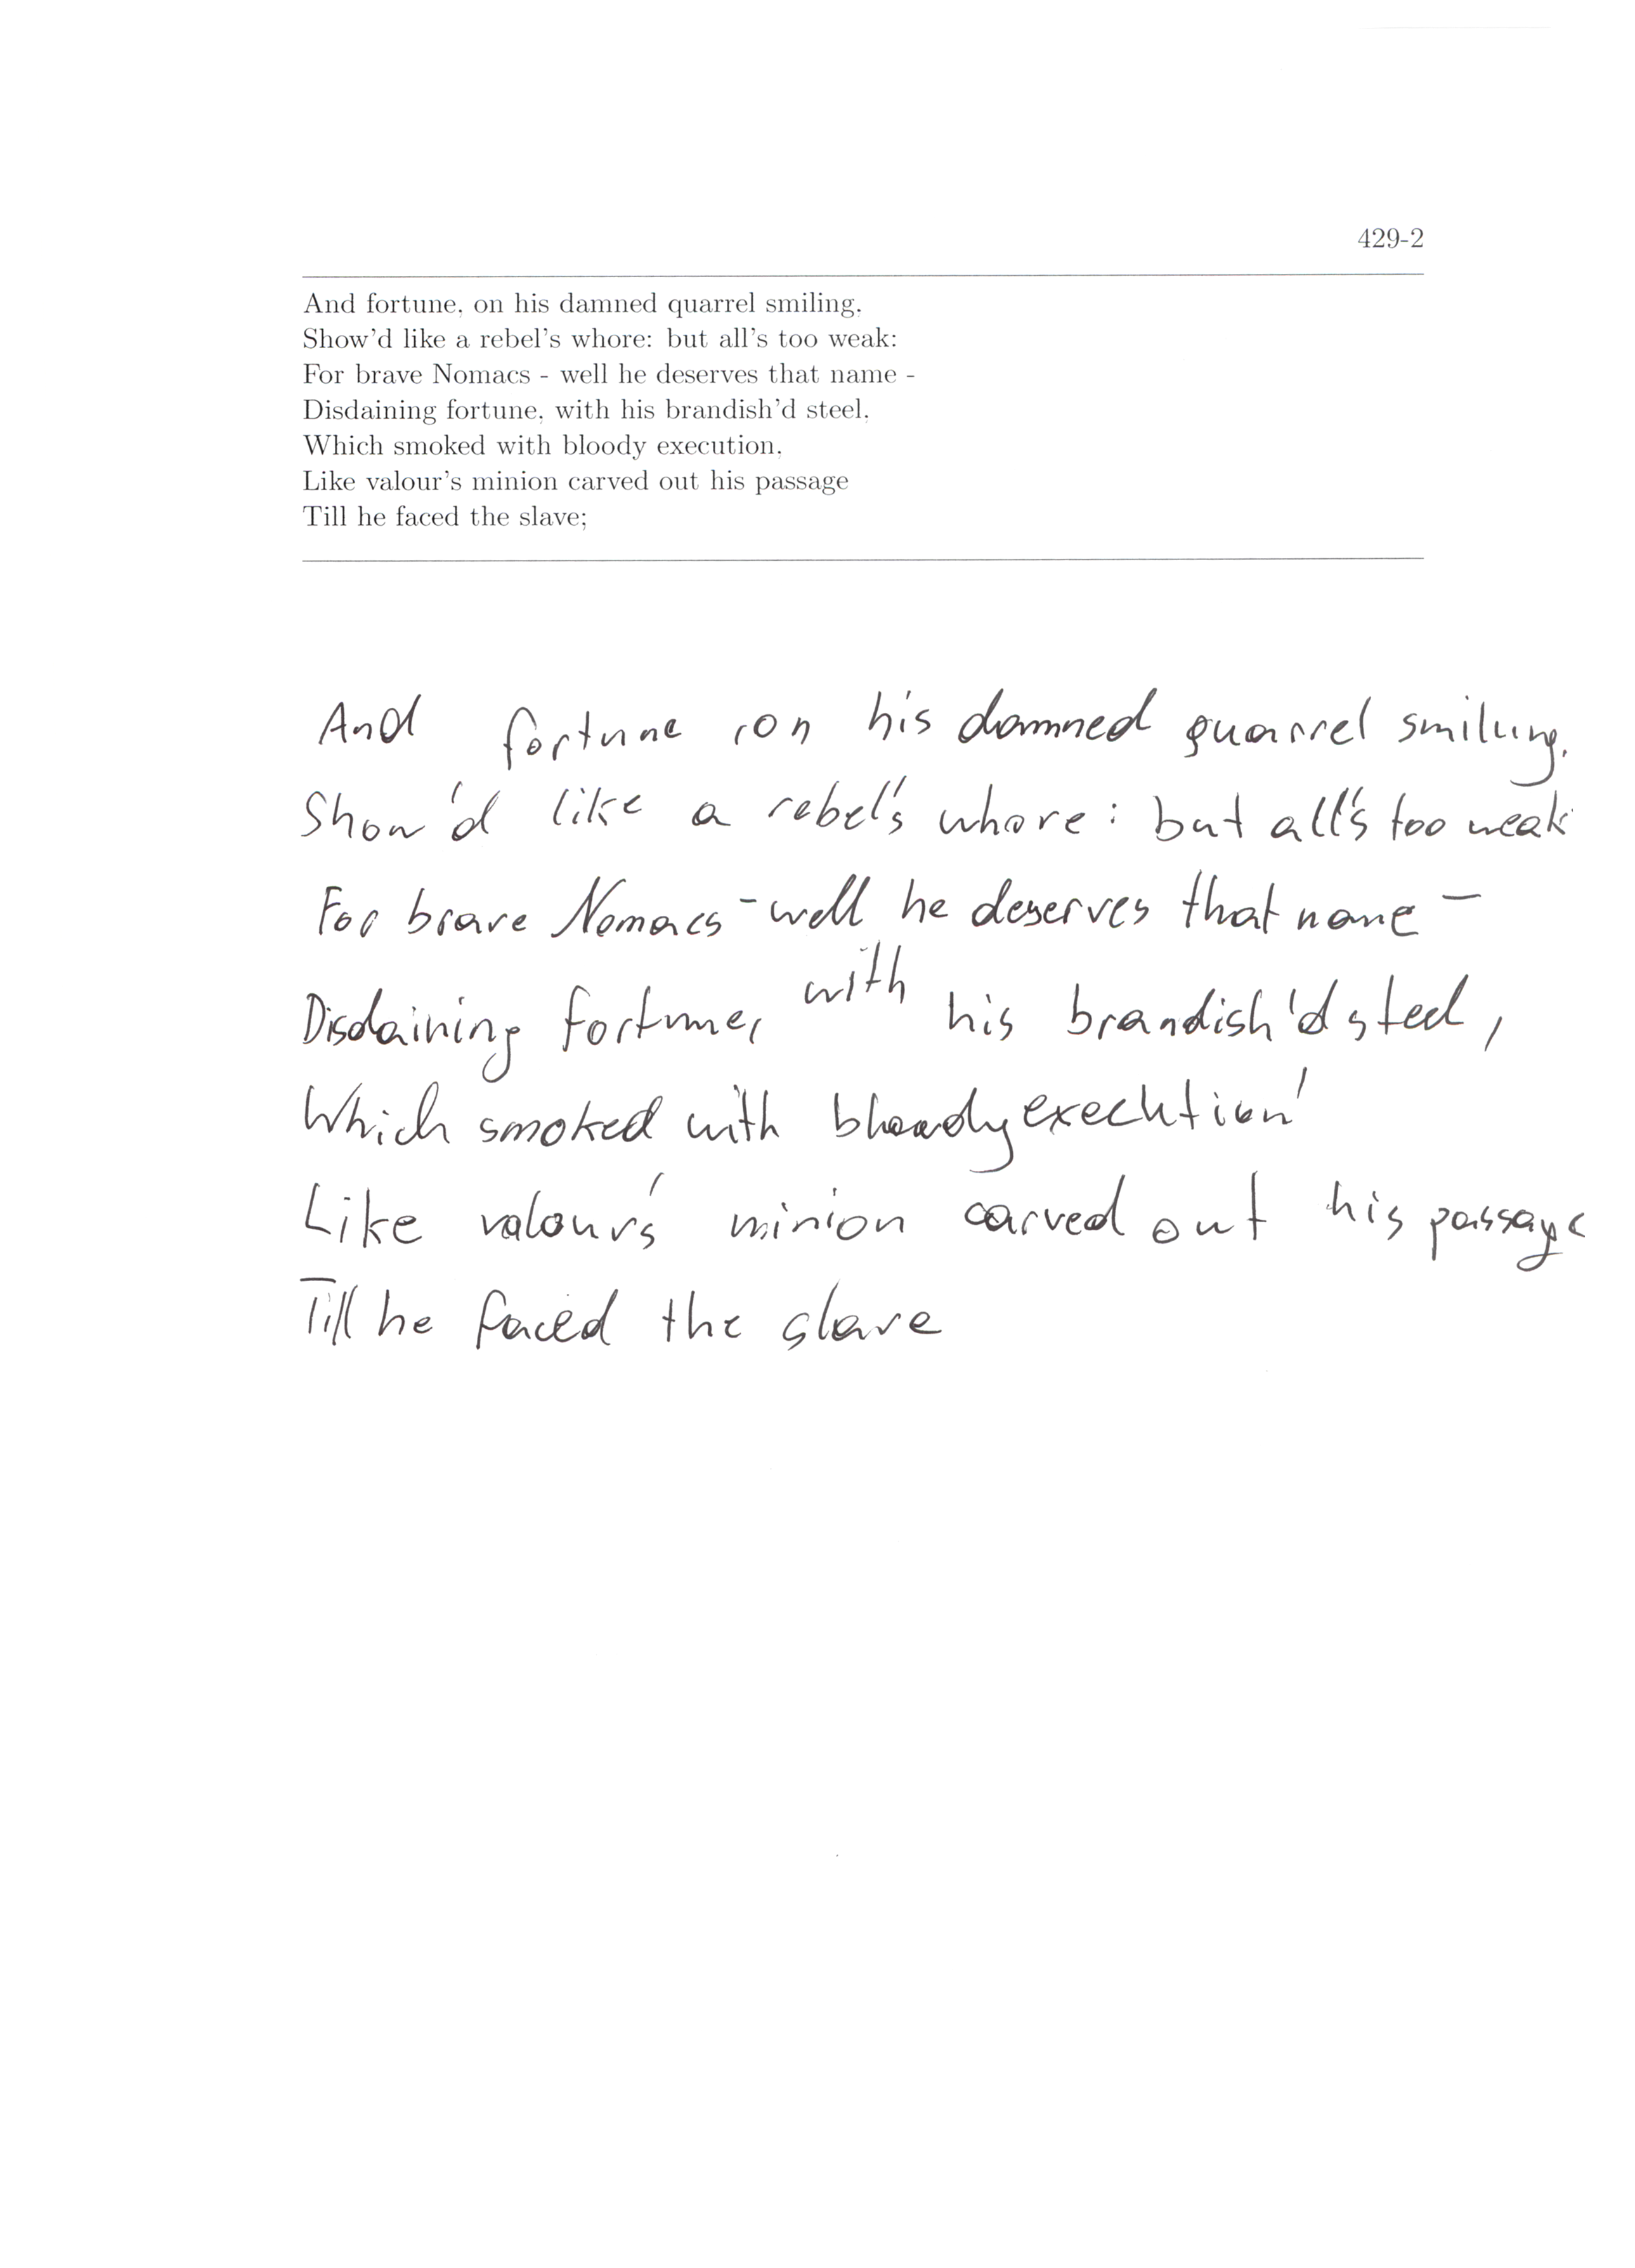 429-2
And fortune, on his damned quarrel smiling,
Show'd like a rebel's whore: but all's too weak:
For brave Nomacs - well he deserves that name -
Disdaining fortune, with his brandish'd steel,
Which smoked with bloody execution,
Like valour's minion carved out his passage
Till he faced the slave;
And fortune , on his damned quarrel smiling,
Show'd like a rebel's whore : but all's too weak
For brave Nomacs - well he deserves that name -
Disdaining fortune, with his brandish'd steel,
Which smoked with bloody execution'
Like valour's minion carved out his passage
Till he faced the slave